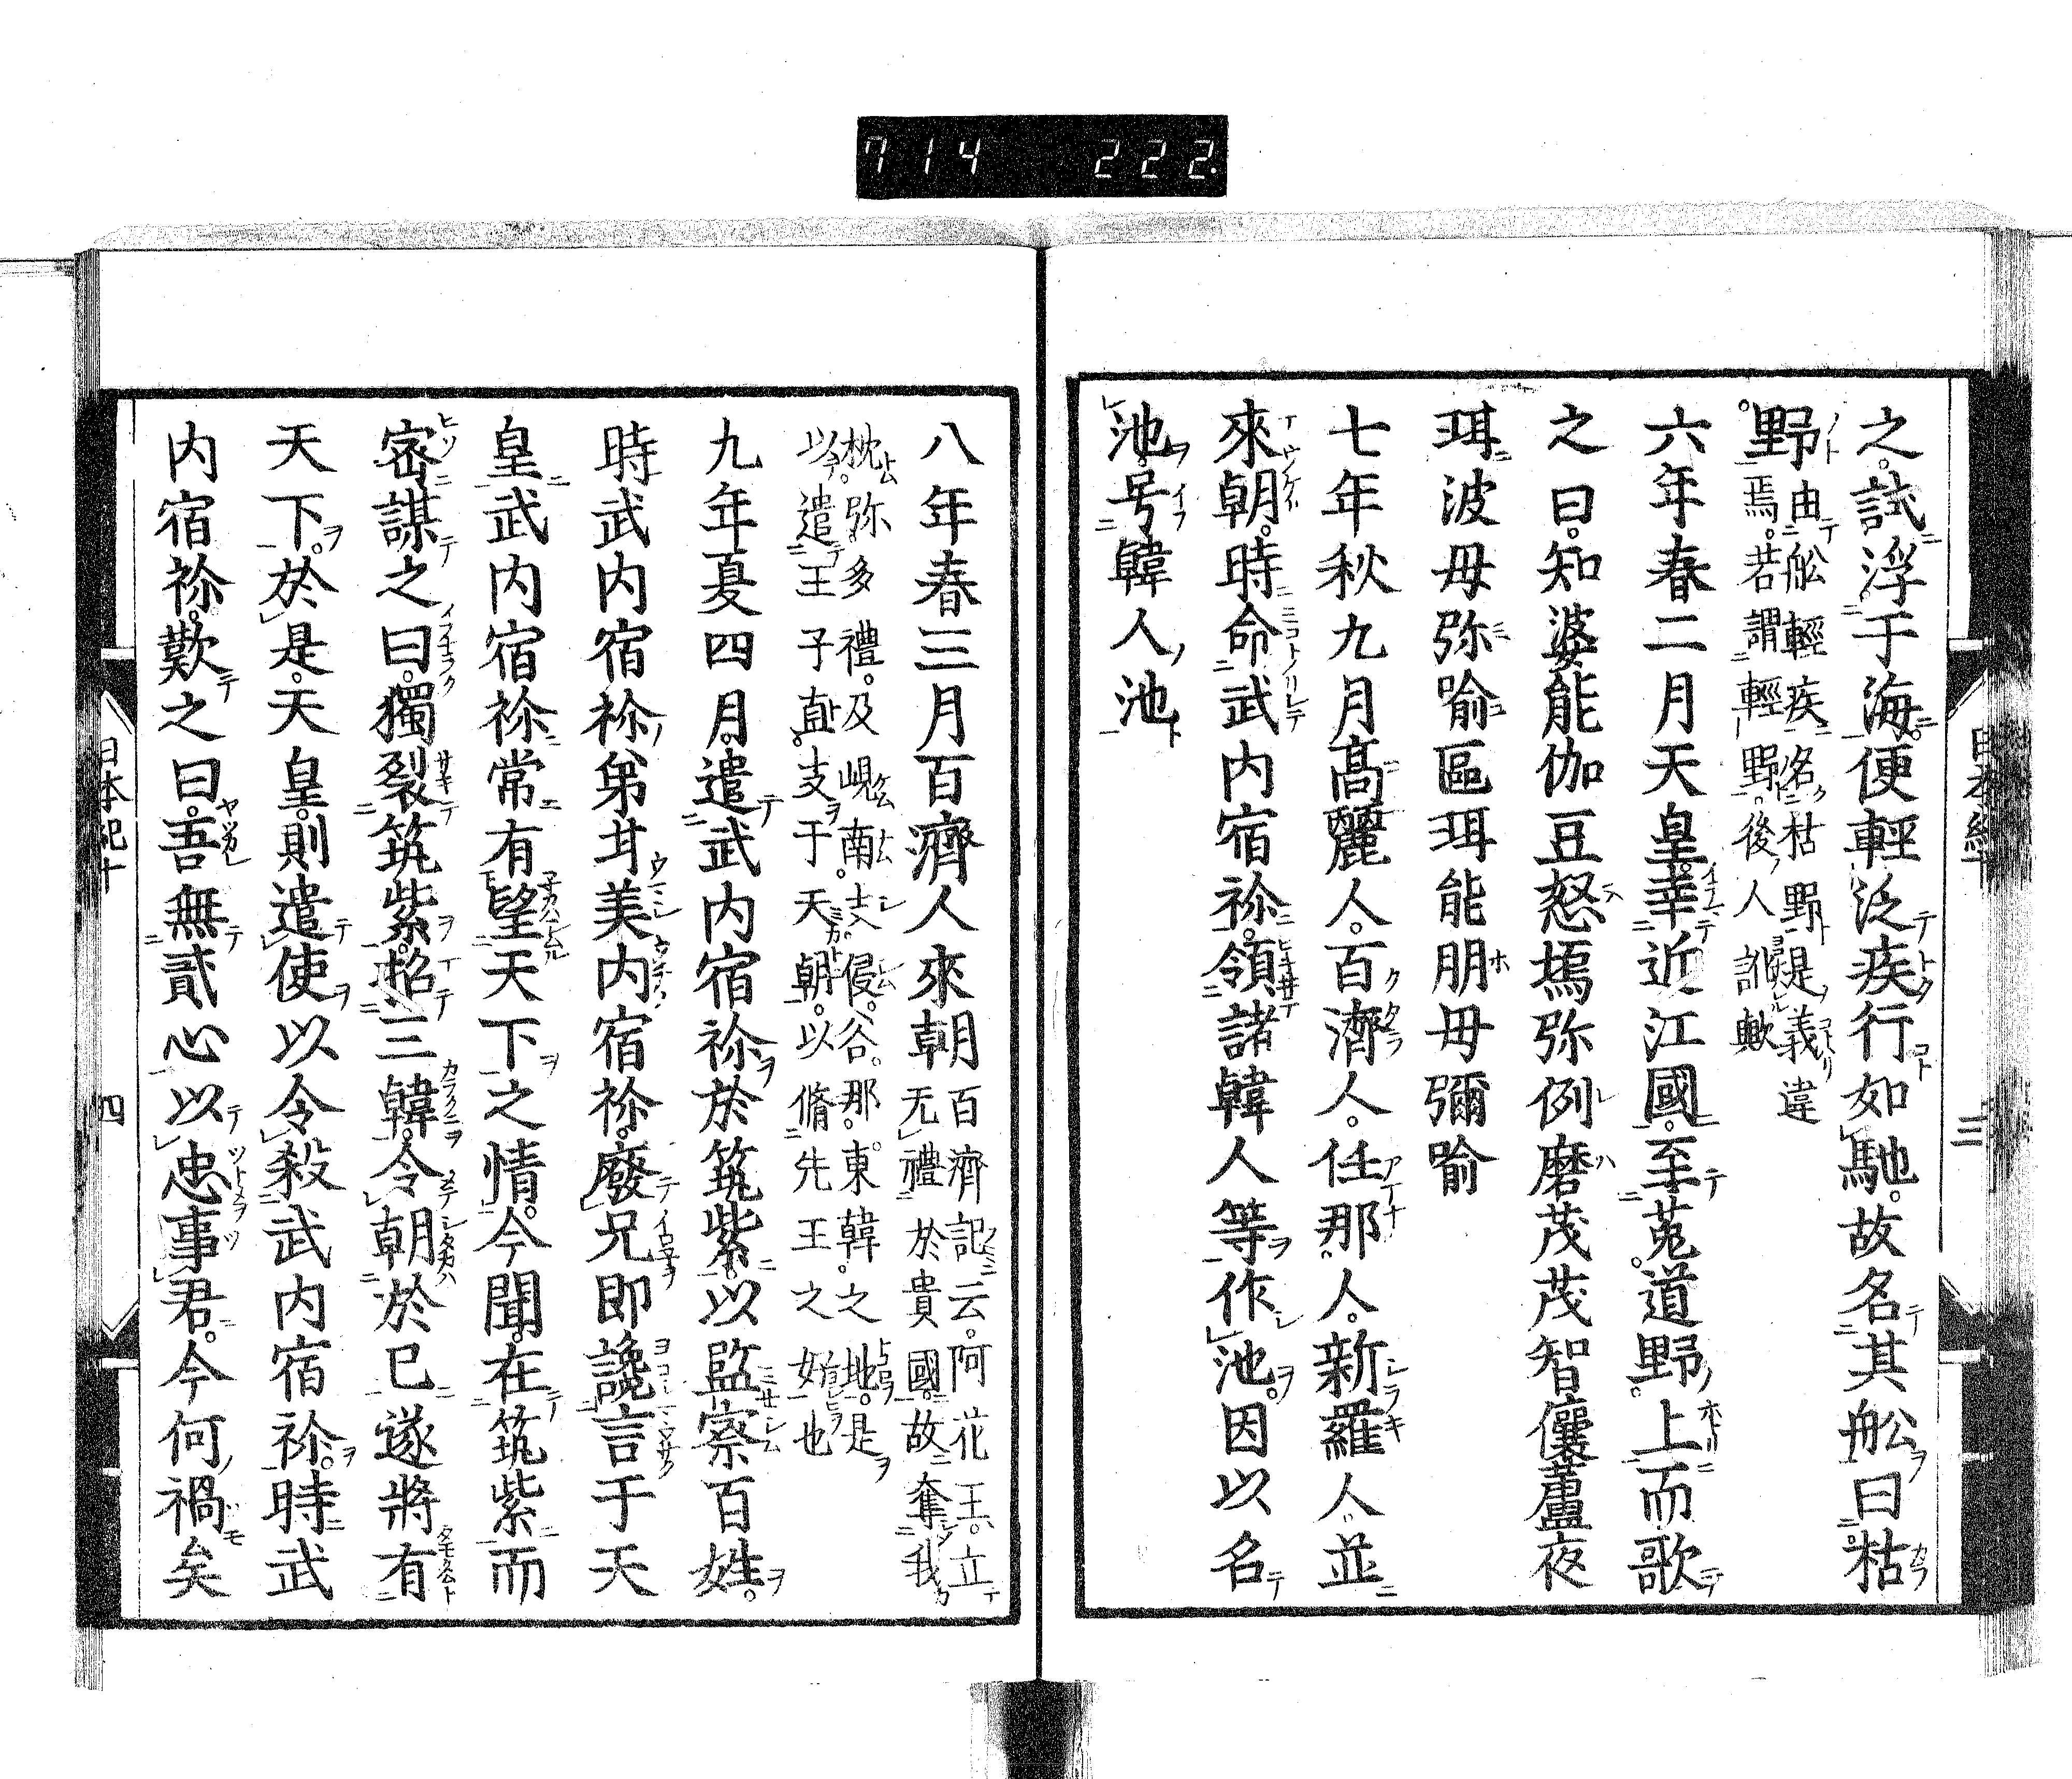 714 222.
日本紀十 三
之試浮于海便輕泛疾行如馳故名其舩曰枯
野由舩輕疾名枯野是義違
野焉若謂輕野後人訛歟
六年春二月天皇幸近江國至菟道野上而歌
之曰知婆能伽豆怒塢弥例磨茂茂智儴蘆夜
珥波母弥喻區珥能朋母彌喻
七年秋九月髙麗人百濟人任那人新羅人並
來朝時命武内宿祢領諸韓人等作池因以名
池号韓人池
八年春三月百濟人來朝百濟記云阿花王立
无禮於貴國故奪我
枕弥多禮及峴南支侵谷那東韓之地是
以遣王子直支于天朝以脩先王之好也
九年夏四月遣武内宿祢於筑紫以監察百姓
時武内宿祢弟甘美内宿祢廢兄即讒言于天
皇武内宿祢常有望天下之情今聞在筑紫而
密謀之曰獨裂筑紫招三韓令朝於已遂將有
天下於是天皇則遣使以令殺武内宿祢時武
内宿祢歎之曰吾無貳心以忠事君今何禍矣
日本紀十 四